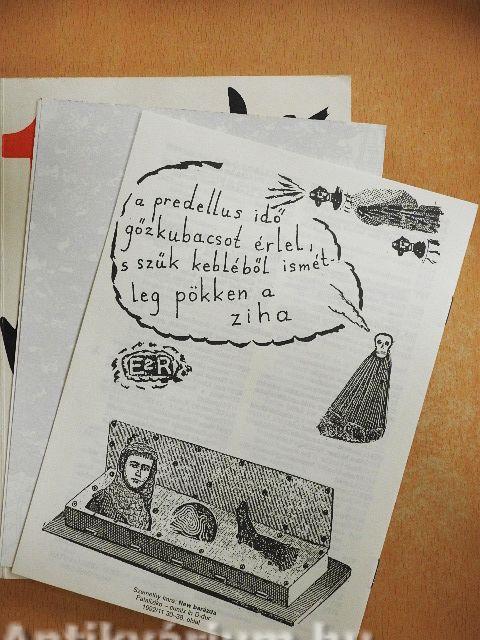 a predellus idő
gőzkubacsot érlel,
s szűk kebléből ismét-
leg pökken a
ziha
E2R
Szemethy Imre: New barázda
1992/11 35–38. oldal
Antikvárium.hu